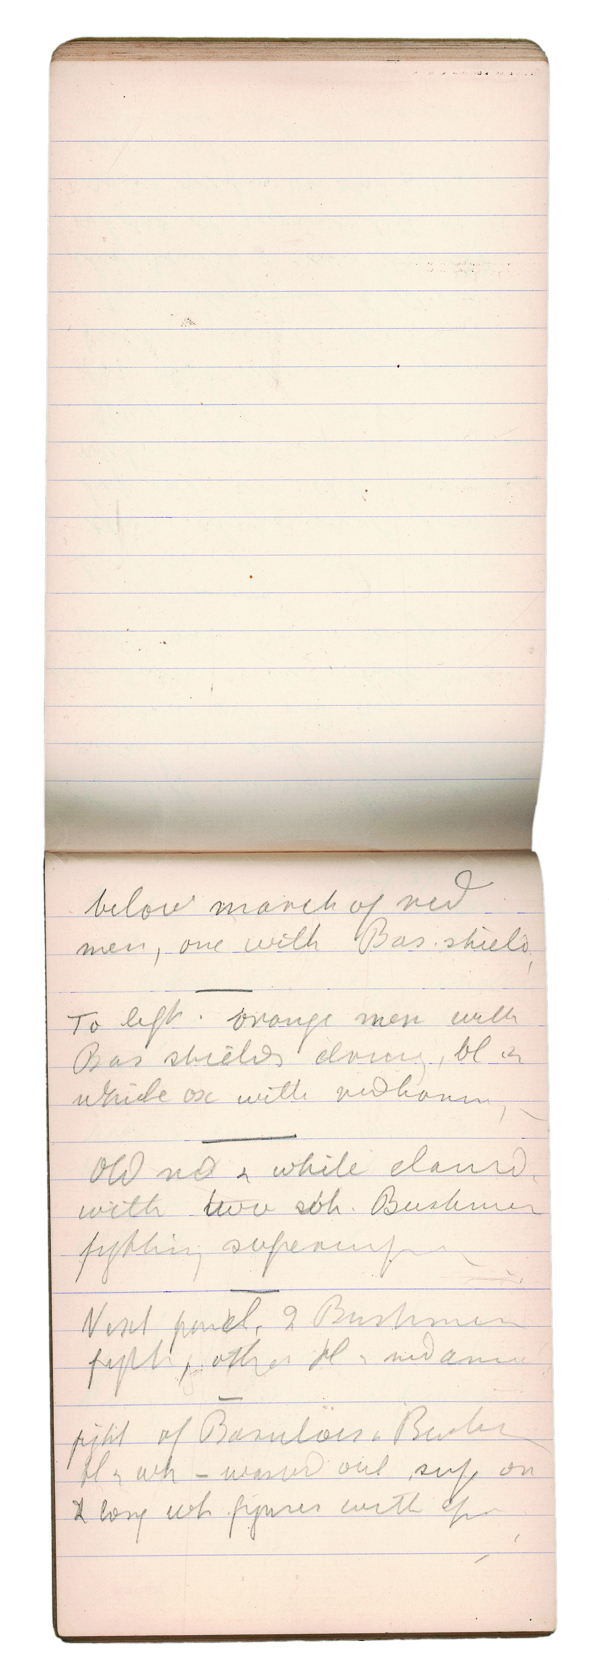 below march of red
men, one with Bas. shield,
To left. orange men with
Bas shields , bl &
white ox with red horns,
Old red & white eland,
with two wh. Bushmen
fighting
Next panel, 2 Bushmen
fight, other bl & red
fight of Basutoes &
bl & wh - washed out sup on
long wh figures with